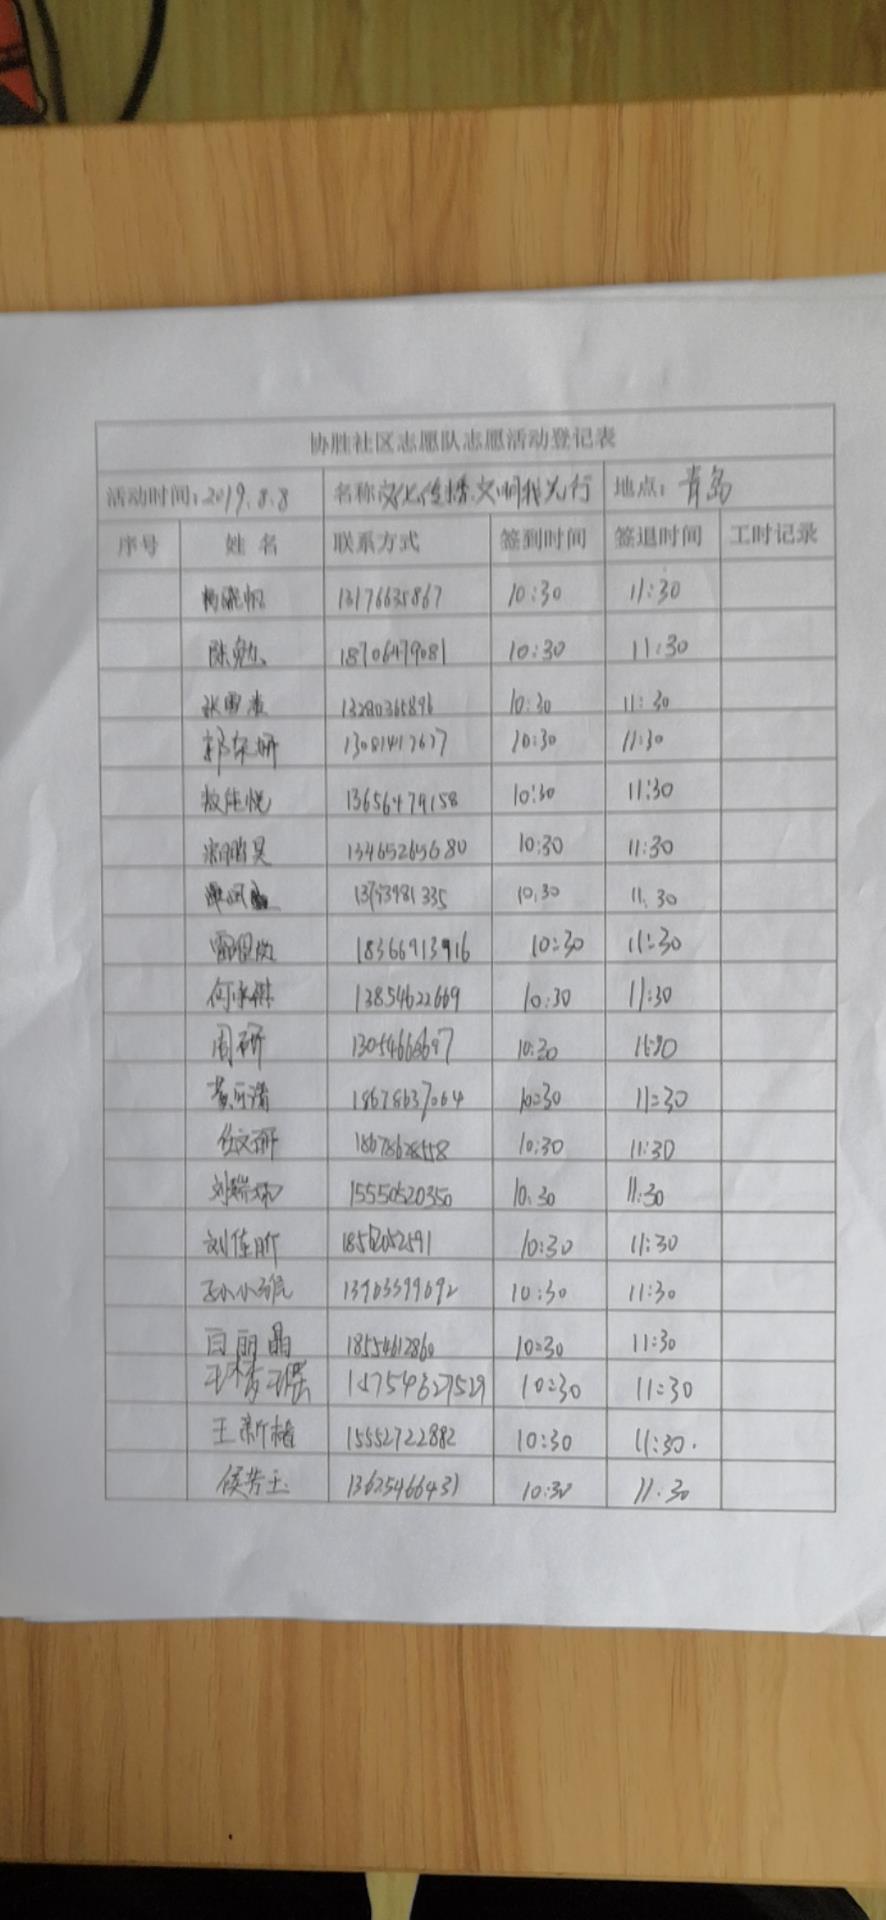 协胜社区志愿队志愿活动登记表
活动时间:2019.8.8 名称 文化传播.文明我先行 地点:青岛
序号 姓名 联系方式 签到时间 签退时间 工时记录
13176635867 10:30 11:30
陈勉 18706479081 10:30 11:30
张雪准 13280365896 10:30 11:30
郭东妍 13081417677 10:30 11:30
敖佳悦 13656479158 10:30 11:30
13465265680 10:30 11:30
10:30 11.30
18366913916 10:30 11:30
13854622669 10:30 11:30
周研 13054668697 10:30
18678637064 10:30 11:30
任文研 18678628558 10:30 11:30
刘瑞炳 15550520350 10:30 11:30
刘佳昕 10:30 11:30
10:30 11:30
白丽晶 18554612860 10:30 11:30
王梦瑶 10:30 11:30
王新楮 15552722882 10:30 11:30.
侯芳玉 13625466431 10:30 11.30